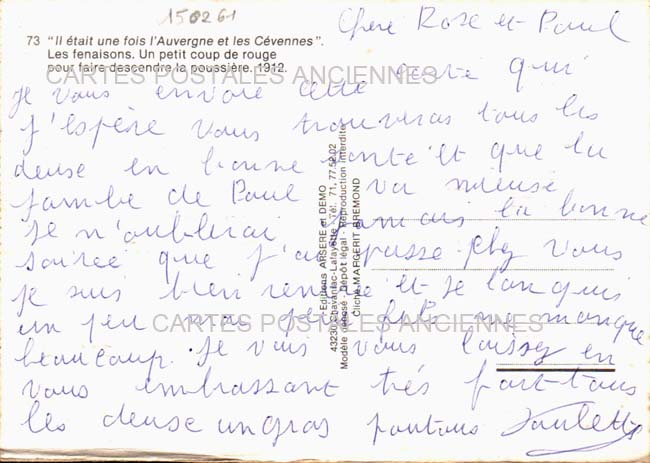 150261
Chère Rose et Paul
73 "Il était une fois l'Auvergne et les Cévennes".
Les fenaisons. Un petit coup de rouge
pour faire descendre la poussière. 1912.
CARTES POSTALES ANCIENNES
Je vous envoie cette carte qui
j'espère vous trouveras tous les
deuse en bonne sante et que la
jambe de Paul va mieuse
Je n'oublirai jamais la bonne
soirée que j'ai passe chez vous
je suis bien rentré et je languis
un peu
CARTES POSTALES ANCIENNES
me manque
beaucoup. Je vais vous laissez en
vous embrassant très fort tous
les deuse un gros poutous Paulette
Editions ARSERE et DEMO
43230 Chavaniac-Lafayette - Tél. 71.77.52.02
Modèle déposé - Dépôt légal - Reproduction interdite
Cliché MARGERIT BREMOND